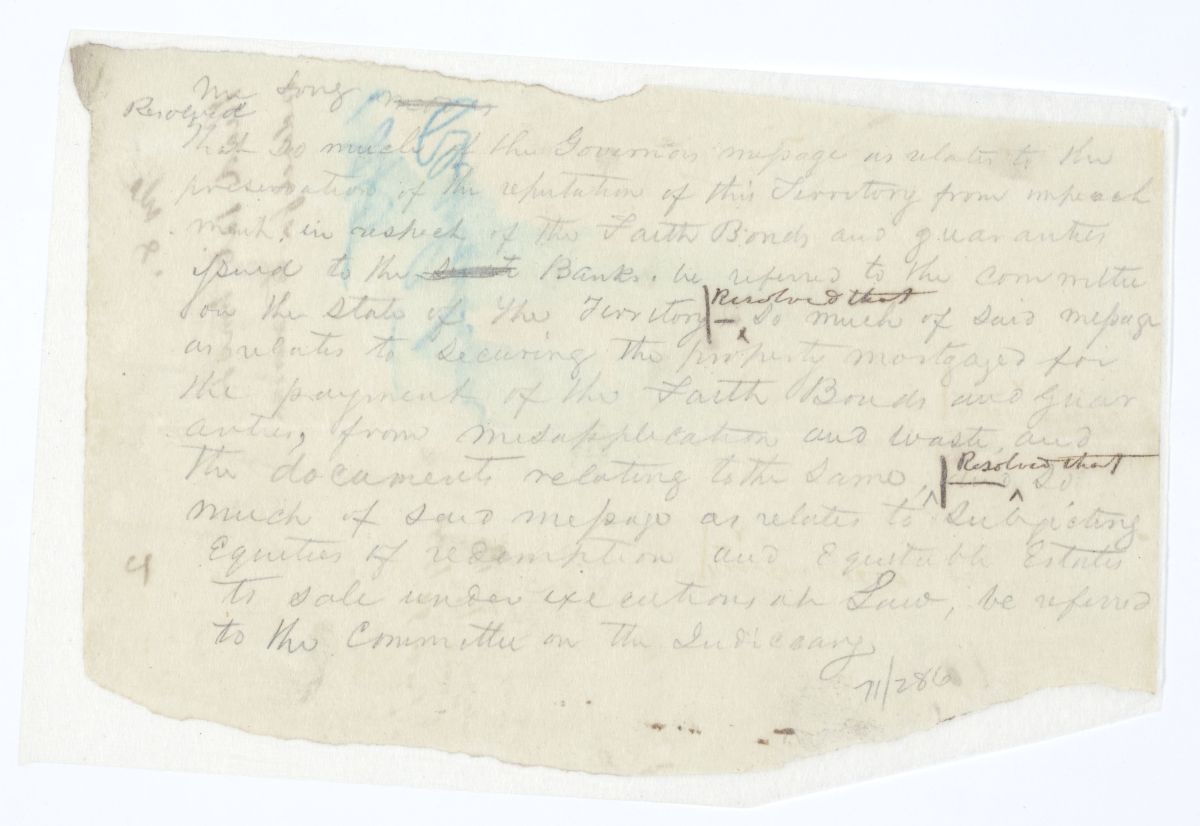 Mr Long
Resolved
That so much of the Governors message as relates to the
preservation of the reputation of this Territory from impeach
ment, in respect of the Faith Bonds and guaranties
issued to the Banks. be referred to the committee
on the State of the Territory Resolved that so much of said message
as relates to securing the property mortgaged for
the payment of the Faith Bonds and guar
anties, from misapplication and waste, and
the documents relating to the same, Resolved that so
much of said message as relates to subjecting
Equities of redemption and Equitable Estates
to sale under executions at Law, be referred
to the Committee on the Judiciary
71/286